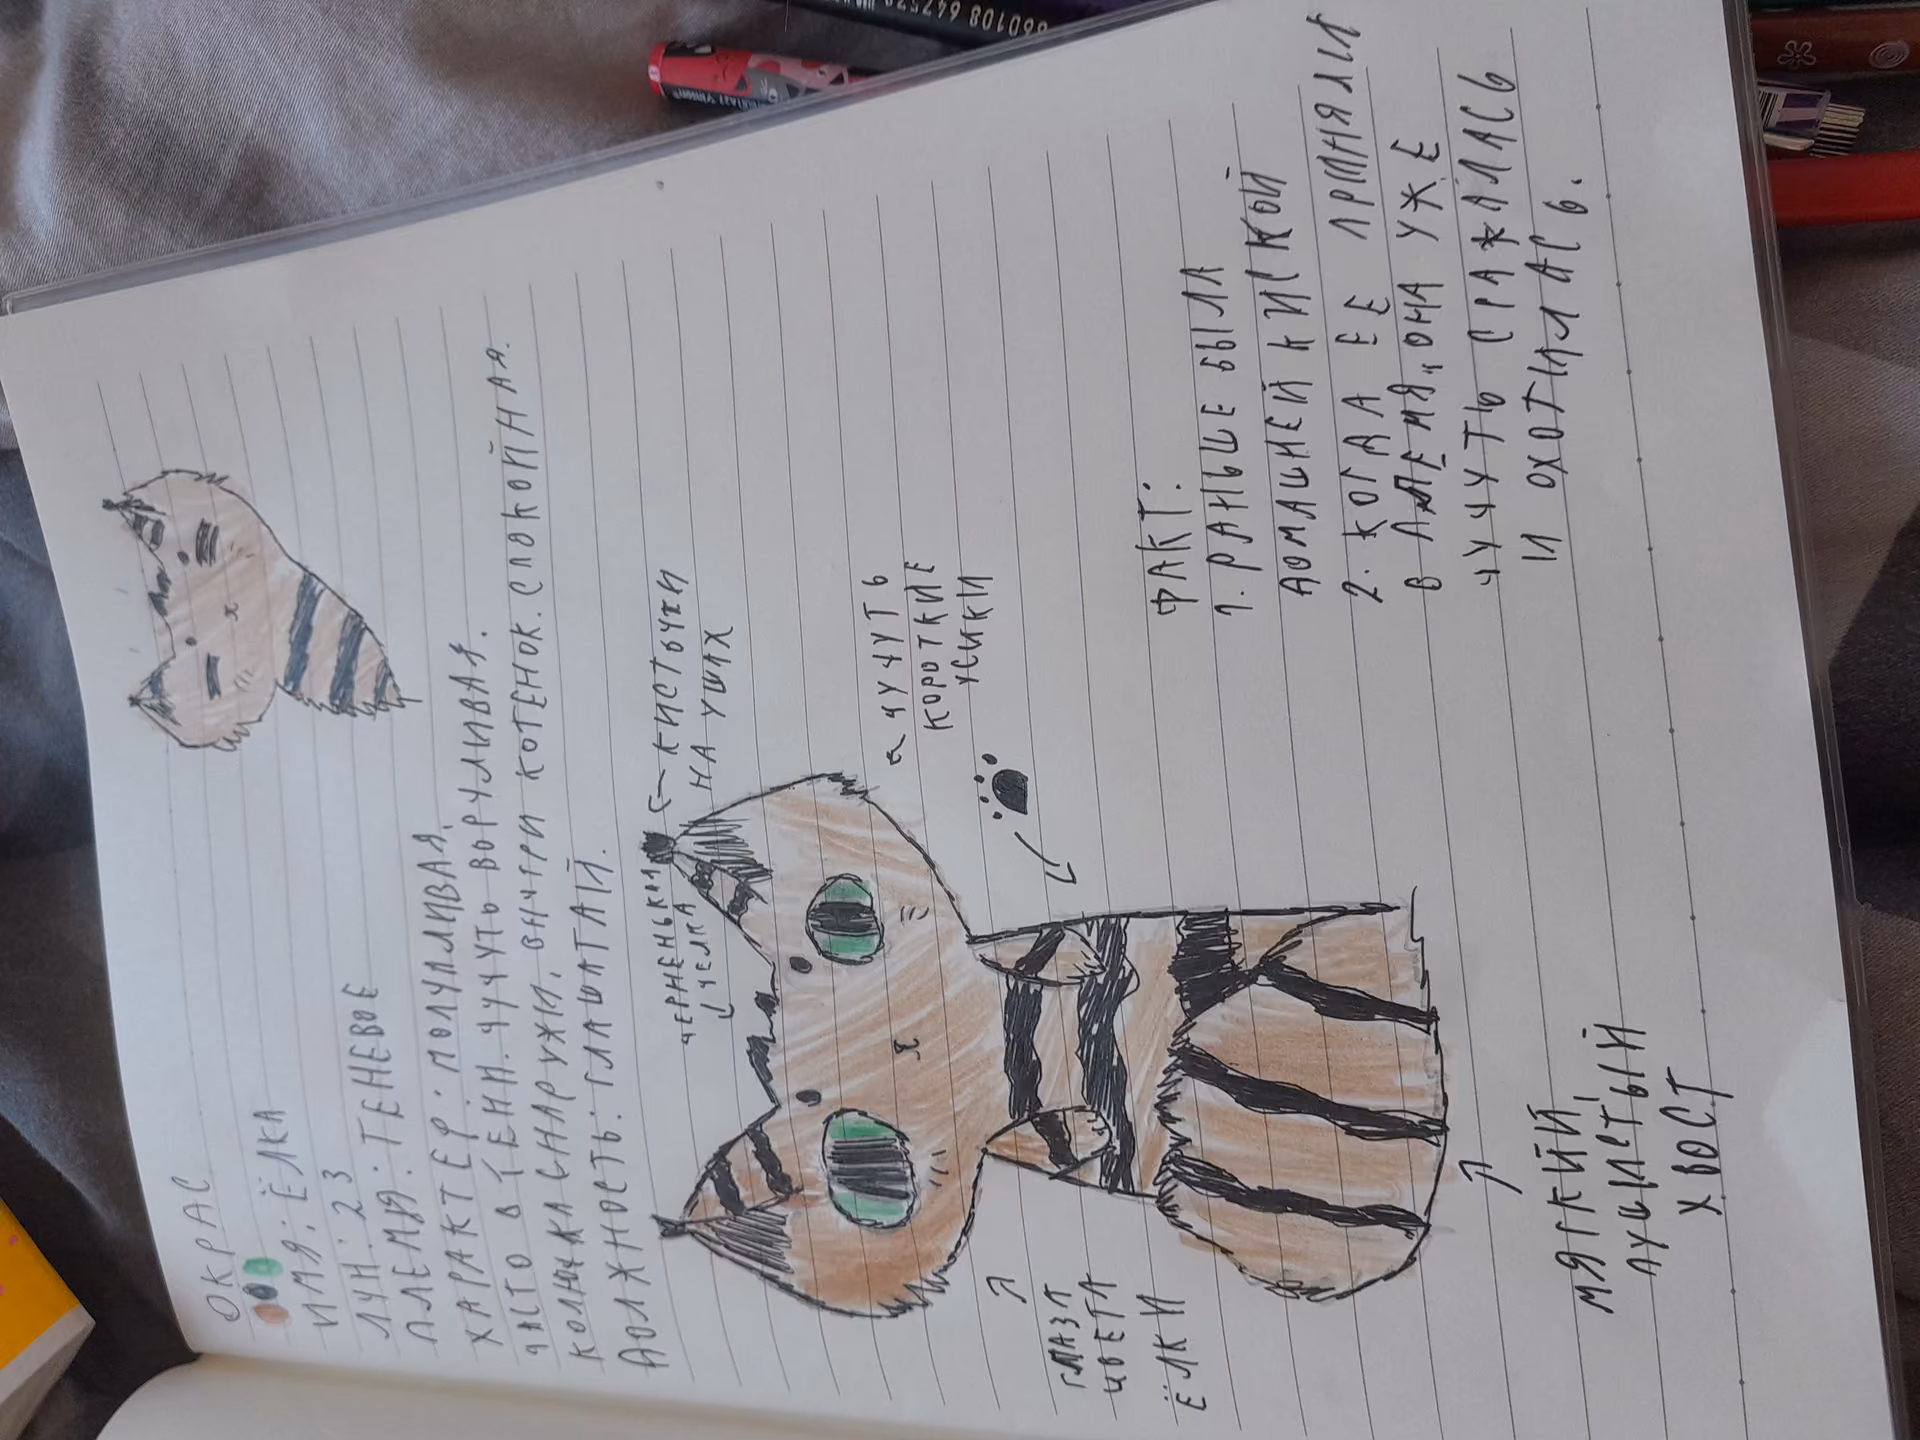 ОКРАС
ИМЯ: ЁЛКА
ЛУН: 23
ПЛЕМЯ: ТЕНЕВОЕ
ХАРАКТЕР: МОЛЧАЛИВАЯ,
ЧАСТО В ТЕНИ. ЧУЧУТЬ ВОРЧЛИВАЯ.
КОЛЮЧКА СНАРУЖИ, ВНУТРИ КОТЕНОК. СПОКОЙНАЯ.
ДОЛЖНОСТЬ: ГЛАШАТАЙ.
ЧЕРНЕНЬКАЯ
ЧЕЛКА
КИСТОЧКИ
НА УШАХ
ЧУЧУТЬ
КОРОТКИЕ
УСИКИ
ГЛАЗА
ЦВЕТА
ЁЛКИ
ФАКТ:
1. РАНЬШЕ БЫЛА
ДОМАШНЕЙ КИСКОЙ
2. КОГДА ЕЕ ПРИНЯЛИ
В ПЛЕМЯ, ОНА УЖЕ
ЧУЧУТЬ СРАЖАЛАСЬ
И ОХОТИЛАСЬ.
МЯГКИЙ,
ПУШИСТЫЙ
ХВОСТ
660108 647529